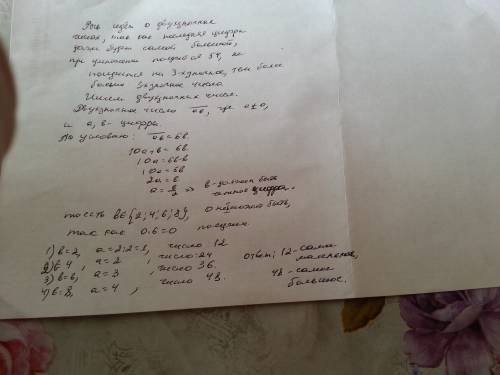 Речь идёт о двузначных
числах, так как последняя цифра
даже будет самой большой,
при умножении получится 54, не
получится на 3-хзначное, тем более
больше 3хзначное число.
Ищем двузначные числа.
Двузначное число ab, где a≠0,
и a, b - цифры.
По условию: ab=6b.
10a+b=6b
10a=6b-b
10a=5b
2a=b
a=b/2 => b-должен быть
чётное цифра.
то есть b∈{2;4;6;8}, 0 не может быть,
так как 0·6=0
1) b=2, a=2:2=1, число 12
2) b=4 a=2, число 24
3) b=6, a=3, число 36.
4) b=8, a=4, число 48.
ответ: 12-самое
маленькое,
48-самое
большое.